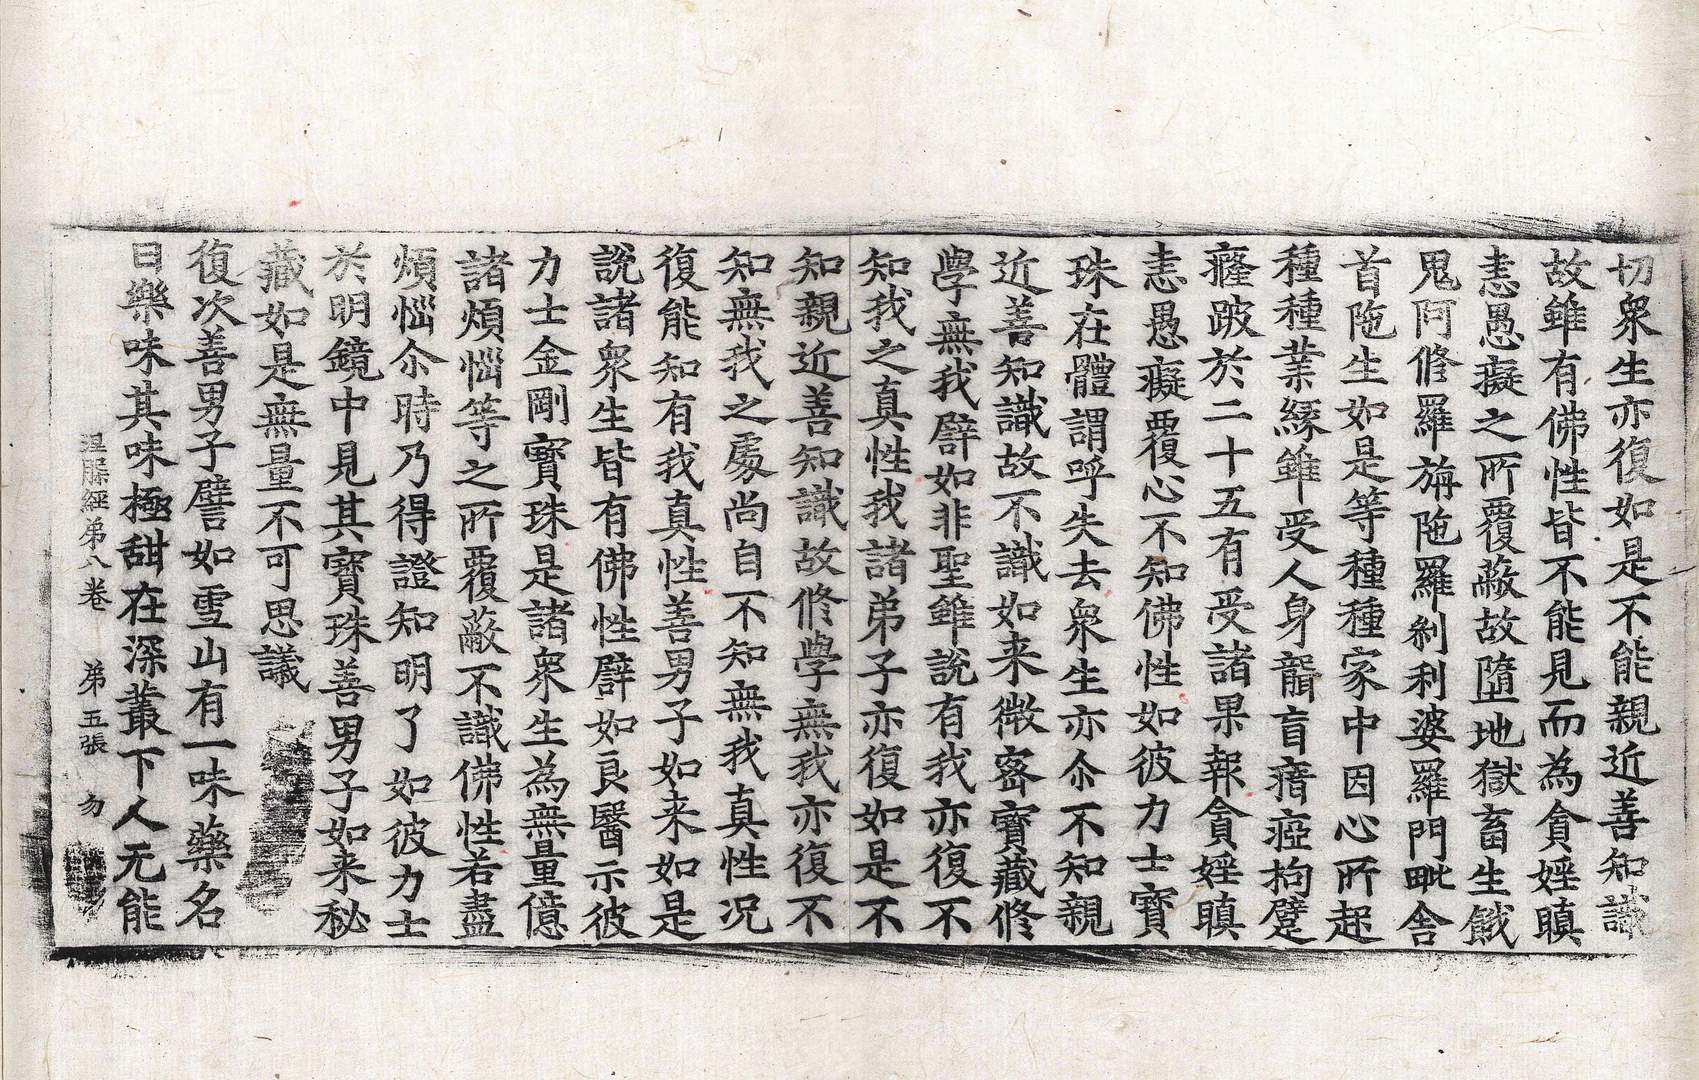 切衆生亦復如是不能親近善知識
故雖有佛性皆不能見而為貪婬瞋
恚愚癡之所覆蔽故墮地獄畜生餓
鬼阿修羅旃陁羅刹利婆羅門毗舍
首陁生如是等種種家中因心所起
種種業緣雖受人身聾盲瘖瘂拘躄
癃跛於二十五有受諸果報貪婬瞋
恚愚癡覆心不知佛性如彼力士寶
珠在體謂呼失去衆生亦尒不知親
近善知識故不識如来微密寶藏修
學無我譬如非聖雖說有我亦復不
知我之真性我諸弟子亦復如是不
知親近善知識故修學無我亦復不
知無我之處尚自不知無我真性况
復能知有我真性善男子如来如是
說諸衆生皆有佛性譬如良醫示彼
力士金剛寶珠是諸衆生為無量億
諸煩惱等之所覆蔽不識佛性若盡
煩惱尒時乃得證知明了如彼力士
於明鏡中見其寶珠善男子如来秘
藏如是無量不可思議
復次善男子譬如雪山有一味藥名
曰樂味其味極甜在深叢下人无能
涅槃經弟八卷　弟五張　勿